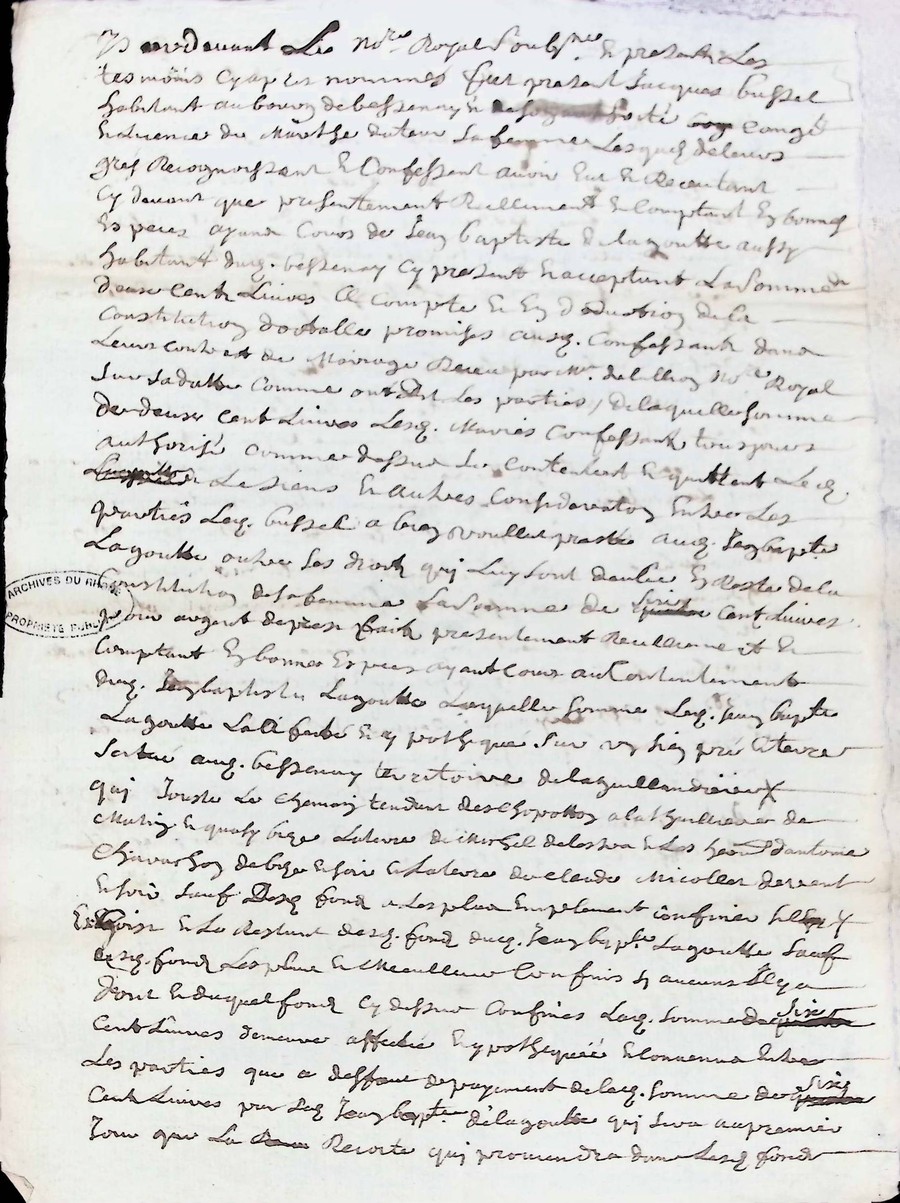 Par devant Le No.re Royal Soubs.ne Et presents Les
tesmoins cy apres nommes fut present Jacques bussel
habitant au bourg de bessenay Et congé
Licence de Marthe sa femme Lesquels de leurs
grés Recognoissent Et Confessent avoir Eut Et Receu tant
Cy devant que presentement Reellement Et Comptant En bonnes
Especes ayant Cours de Jean baptiste de lagoutte aussy
habitant dud. bessenay Cy present Et acceptant La Somme de
deux Cent Livres a Compte Et En Deduction de la
Constitution dotalle promise ausd. Confessants dans
Leur contract de Mariage Receu par Me. No.re Royal
Sur sa datte comme ont dit Les parties / de laquelle somme
de deux cent Livres Lesd. Mariés Confessants tousjours
authorisée comme dessus se contentent Et quittent Led.
Les siens Et autres Consideration Entre Les
parties Led. bussel a bien voullu preste aud. Jean bapte
Lagoutte outre Les droits qui Luy sont deubs En Reste de la
Constitution de sa femme La Somme de six cent Livres
pour argent de prest fait presentement Reellement Et
Comptant En bonnes Especes ayant Cours au Contentement
dud. Jean baptiste Lagoutte Laquelle somme Led. Jean bapte
Lagoutte L'a affecté Et ypothequé Sur un sien pré Et terre
Scitué aud. bessenay territoire de la guillandiere
qui Jouste Le chemin tendant des a la de
Matin Et quasy bize La terre de Michel Et Les heors d'antoine
Chavachon de bize Et soir Et La terre de claude Nicollet de vent
Et soir Sauf Desd. fonds a Les plus Emplement confiner
Et Le Restant desd. fonds dud. Jean bapte Lagoutte Sauf
desd. fonds Les plus Et Meilleurs Confins sy aucuns Il y a
dont Et duquel fonds Cy dessus Confinés Lad. Somme de six
Cent Livres demeure affectée Et ypothequée Et Convenu Entre
Les parties que a deffaut de payement de lad. Somme de six
Cent Livres par Led. Jean bapte de lagoutte qui sera au premier
Jour que La Recolte qui proviendra dans Lesd. fonds
ARCHIVES DU RHONE
PROPRIETE PUBLIQUE